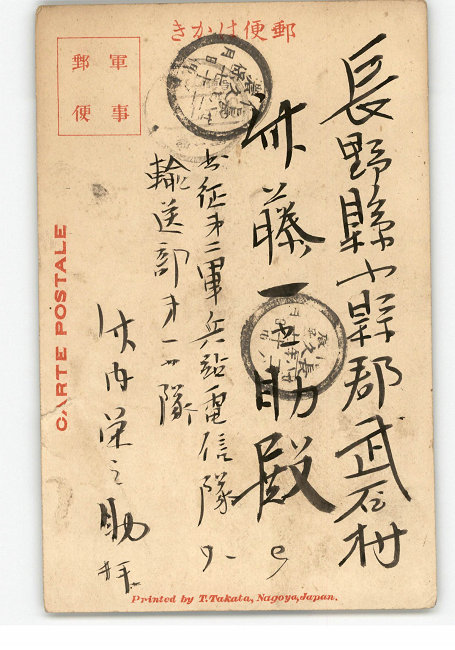 きかは便郵
軍事
郵便
長野縣小縣郡武石村
藤一 助殿
出征才二軍兵站電信隊
輸送部才一
隊
竹内栄之助
CARTE POSTALE
Printed by T.Takata, Nagoya, Japan.